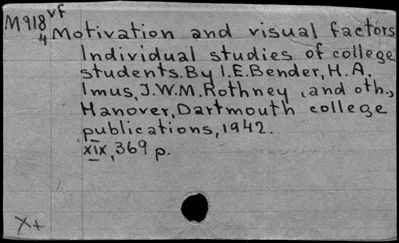 M918 vf
4 Motivation and visual factors
Individual studies of college
students. By I.E. Bender, H.A.
Imus, J.W.M. Rothney, and oth.,
Hanover, Dartmouth college
publications, 1942.
xix, 369 p.
X+